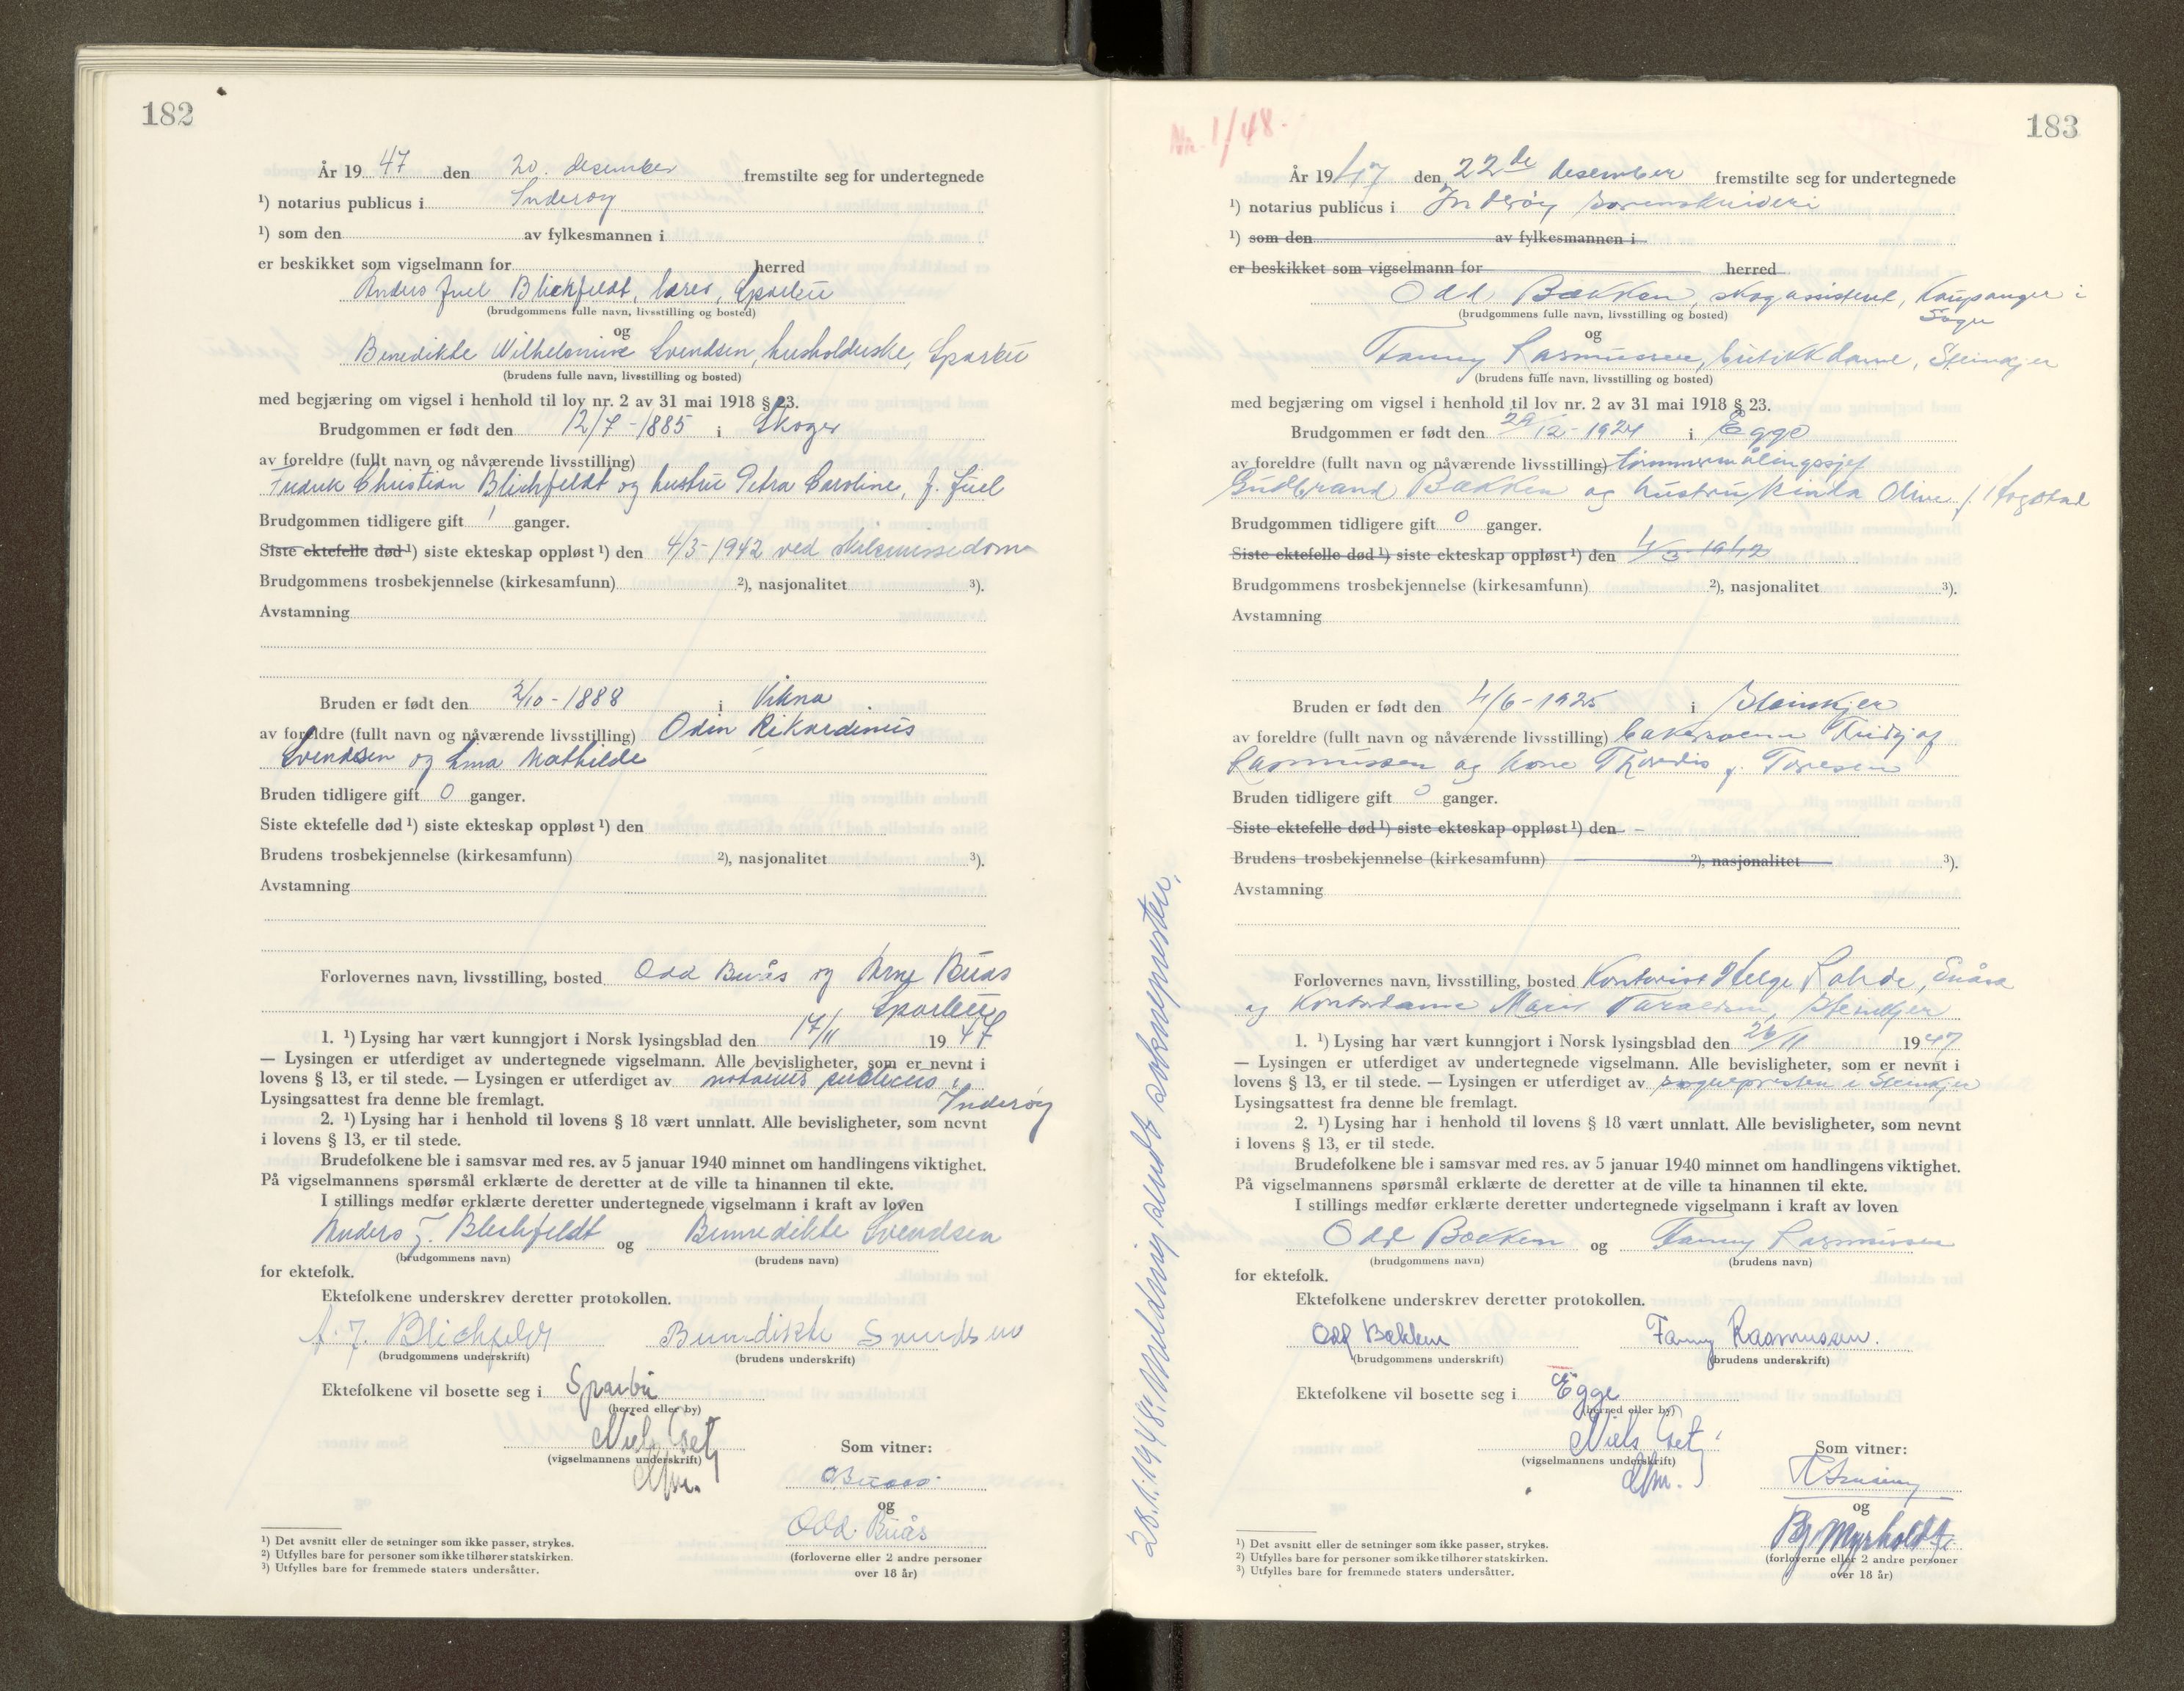 182
År 19 47 den 20. desember fremstilte seg for undertegnede
¹) notarius publicus i Inderøy
¹) som den av fylkesmannen i
er beskikket som vigselmann for herred
Anders Juel Blichfeldt, lærer, Sparbu
(brudgommens fulle navn, livsstilling og bosted)
og
Benedikte Wilhelmine Svendsen, husholderske, Sparbu
(brudens fulle navn, livsstilling og bosted)
med begjæring om vigsel i henhold til lov nr. 2 av 31 mai 1918 § 23.
Brudgommen er født den 12/7-1885 i Skoger
av foreldre (fullt navn og nåværende livsstilling)
Fredrik Christian Blichfeldt og hustru Petra Caroline, f. Juel
Brudgommen tidligere gift 1 ganger.
Siste ektefelle død ¹) siste ekteskap oppløst ¹) den 4/3-1942 ved skilsmissedom
Brudgommens trosbekjennelse (kirkesamfunn) ²), nasjonalitet ³).
Avstamning
Bruden er født den 2/10-1888 i Vikna
av foreldre (fullt navn og nåværende livsstilling) Odin Rikardinus
Svendsen og Mathilde
Bruden tidligere gift 0 ganger.
Siste ektefelle død ¹) siste ekteskap oppløst ¹) den
Brudens trosbekjennelse (kirkesamfunn) ²), nasjonalitet ³).
Avstamning
Forlovernes navn, livsstilling, bosted Odd Buås og Arne Buås
Sparbu
1. ¹) Lysing har vært kunngjort i Norsk lysingsblad den 17/11 19 47
— Lysingen er utferdiget av undertegnede vigselmann. Alle bevisligheter, som er nevnt i
lovens § 13, er til stede. — Lysingen er utferdiget av notarius publicus i
Lysingsattest fra denne ble fremlagt. Inderøy
2. ¹) Lysing har i henhold til lovens § 18 vært unnlatt. Alle bevisligheter, som nevnt
i lovens § 13, er til stede.
Brudefolkene ble i samsvar med res. av 5 januar 1940 minnet om handlingens viktighet.
På vigselmannens spørsmål erklærte de deretter at de ville ta hinannen til ekte.
I stillings medfør erklærte deretter undertegnede vigselmann i kraft av loven
Anders J. Blichfeldt og Benedikte Svendsen
(brudgommens navn) (brudens navn)
for ektefolk.
Ektefolkene underskrev deretter protokollen.
A. J. Blichfeldt Benedikte Svendsen
(brudgommens underskrift) (brudens underskrift)
Ektefolkene vil bosette seg i Sparbu
(herred eller by)
Niels
(vigselmannens underskrift)
Som vitner:
og
Odd Buås
(forloverne eller 2 andre personer
over 18 år)
¹) Det avsnitt eller de setninger som ikke passer, strykes.
²) Utfylles bare for personer som ikke tilhører statskirken.
³) Utfylles bare for fremmede staters undersåtter.
Nr. 1/48.
183
År 19 47 den 22de desember fremstilte seg for undertegnede
¹) notarius publicus i Inderøy sorenskriveri
¹) som den av fylkesmannen i
er beskikket som vigselmann for herred
Odd Bækken, skogassistent, Kaupanger i
Sogn
(brudgommens fulle navn, livsstilling og bosted)
og
Fanny Rasmussen, butikkdame, Steinkjer
(brudens fulle navn, livsstilling og bosted)
med begjæring om vigsel i henhold til lov nr. 2 av 31 mai 1918 § 23.
Brudgommen er født den 29/12-1921 i Egge
av foreldre (fullt navn og nåværende livsstilling) tømmermålingssjef
Gudbrand Bækken og hustru Oline f.
Brudgommen tidligere gift 0 ganger.
Siste ektefelle død ¹) siste ekteskap oppløst ¹) den 4/3-1942
Brudgommens trosbekjennelse (kirkesamfunn) ²), nasjonalitet ³).
Avstamning
Bruden er født den 4/6-1925 i Steinkjer
av foreldre (fullt navn og nåværende livsstilling) bakersvenn Fridtjof
Rasmussen og kone Thordis f. Toresen
Bruden tidligere gift 0 ganger.
Siste ektefelle død ¹) siste ekteskap oppløst ¹) den
Brudens trosbekjennelse (kirkesamfunn) ²), nasjonalitet ³).
Avstamning
Forlovernes navn, livsstilling, bosted Kontorist Helge Snåsa
og Kontordame Steinkjer
1. ¹) Lysing har vært kunngjort i Norsk lysingsblad den 26/11 19 47
— Lysingen er utferdiget av undertegnede vigselmann. Alle bevisligheter, som er nevnt i
lovens § 13, er til stede. — Lysingen er utferdiget av sognepresten i Steinkjer
Lysingsattest fra denne ble fremlagt.
2. ¹) Lysing har i henhold til lovens § 18 vært unnlatt. Alle bevisligheter, som nevnt
i lovens § 13, er til stede.
Brudefolkene ble i samsvar med res. av 5 januar 1940 minnet om handlingens viktighet.
På vigselmannens spørsmål erklærte de deretter at de ville ta hinannen til ekte.
I stillings medfør erklærte deretter undertegnede vigselmann i kraft av loven
Odd Bækken og Fanny Rasmussen
(brudgommens navn) (brudens navn)
for ektefolk.
Ektefolkene underskrev deretter protokollen.
Odd Bækken Fanny Rasmussen.
(brudgommens underskrift) (brudens underskrift)
Ektefolkene vil bosette seg i Egge
(herred eller by)
Niels
(vigselmannens underskrift)
Som vitner:
og
Bj. Myrholdt
(forloverne eller 2 andre personer
over 18 år)
¹) Det avsnitt eller de setninger som ikke passer, strykes.
²) Utfylles bare for personer som ikke tilhører statskirken.
³) Utfylles bare for fremmede staters undersåtter.
28.1.1948: Melding sendt soknepresten.